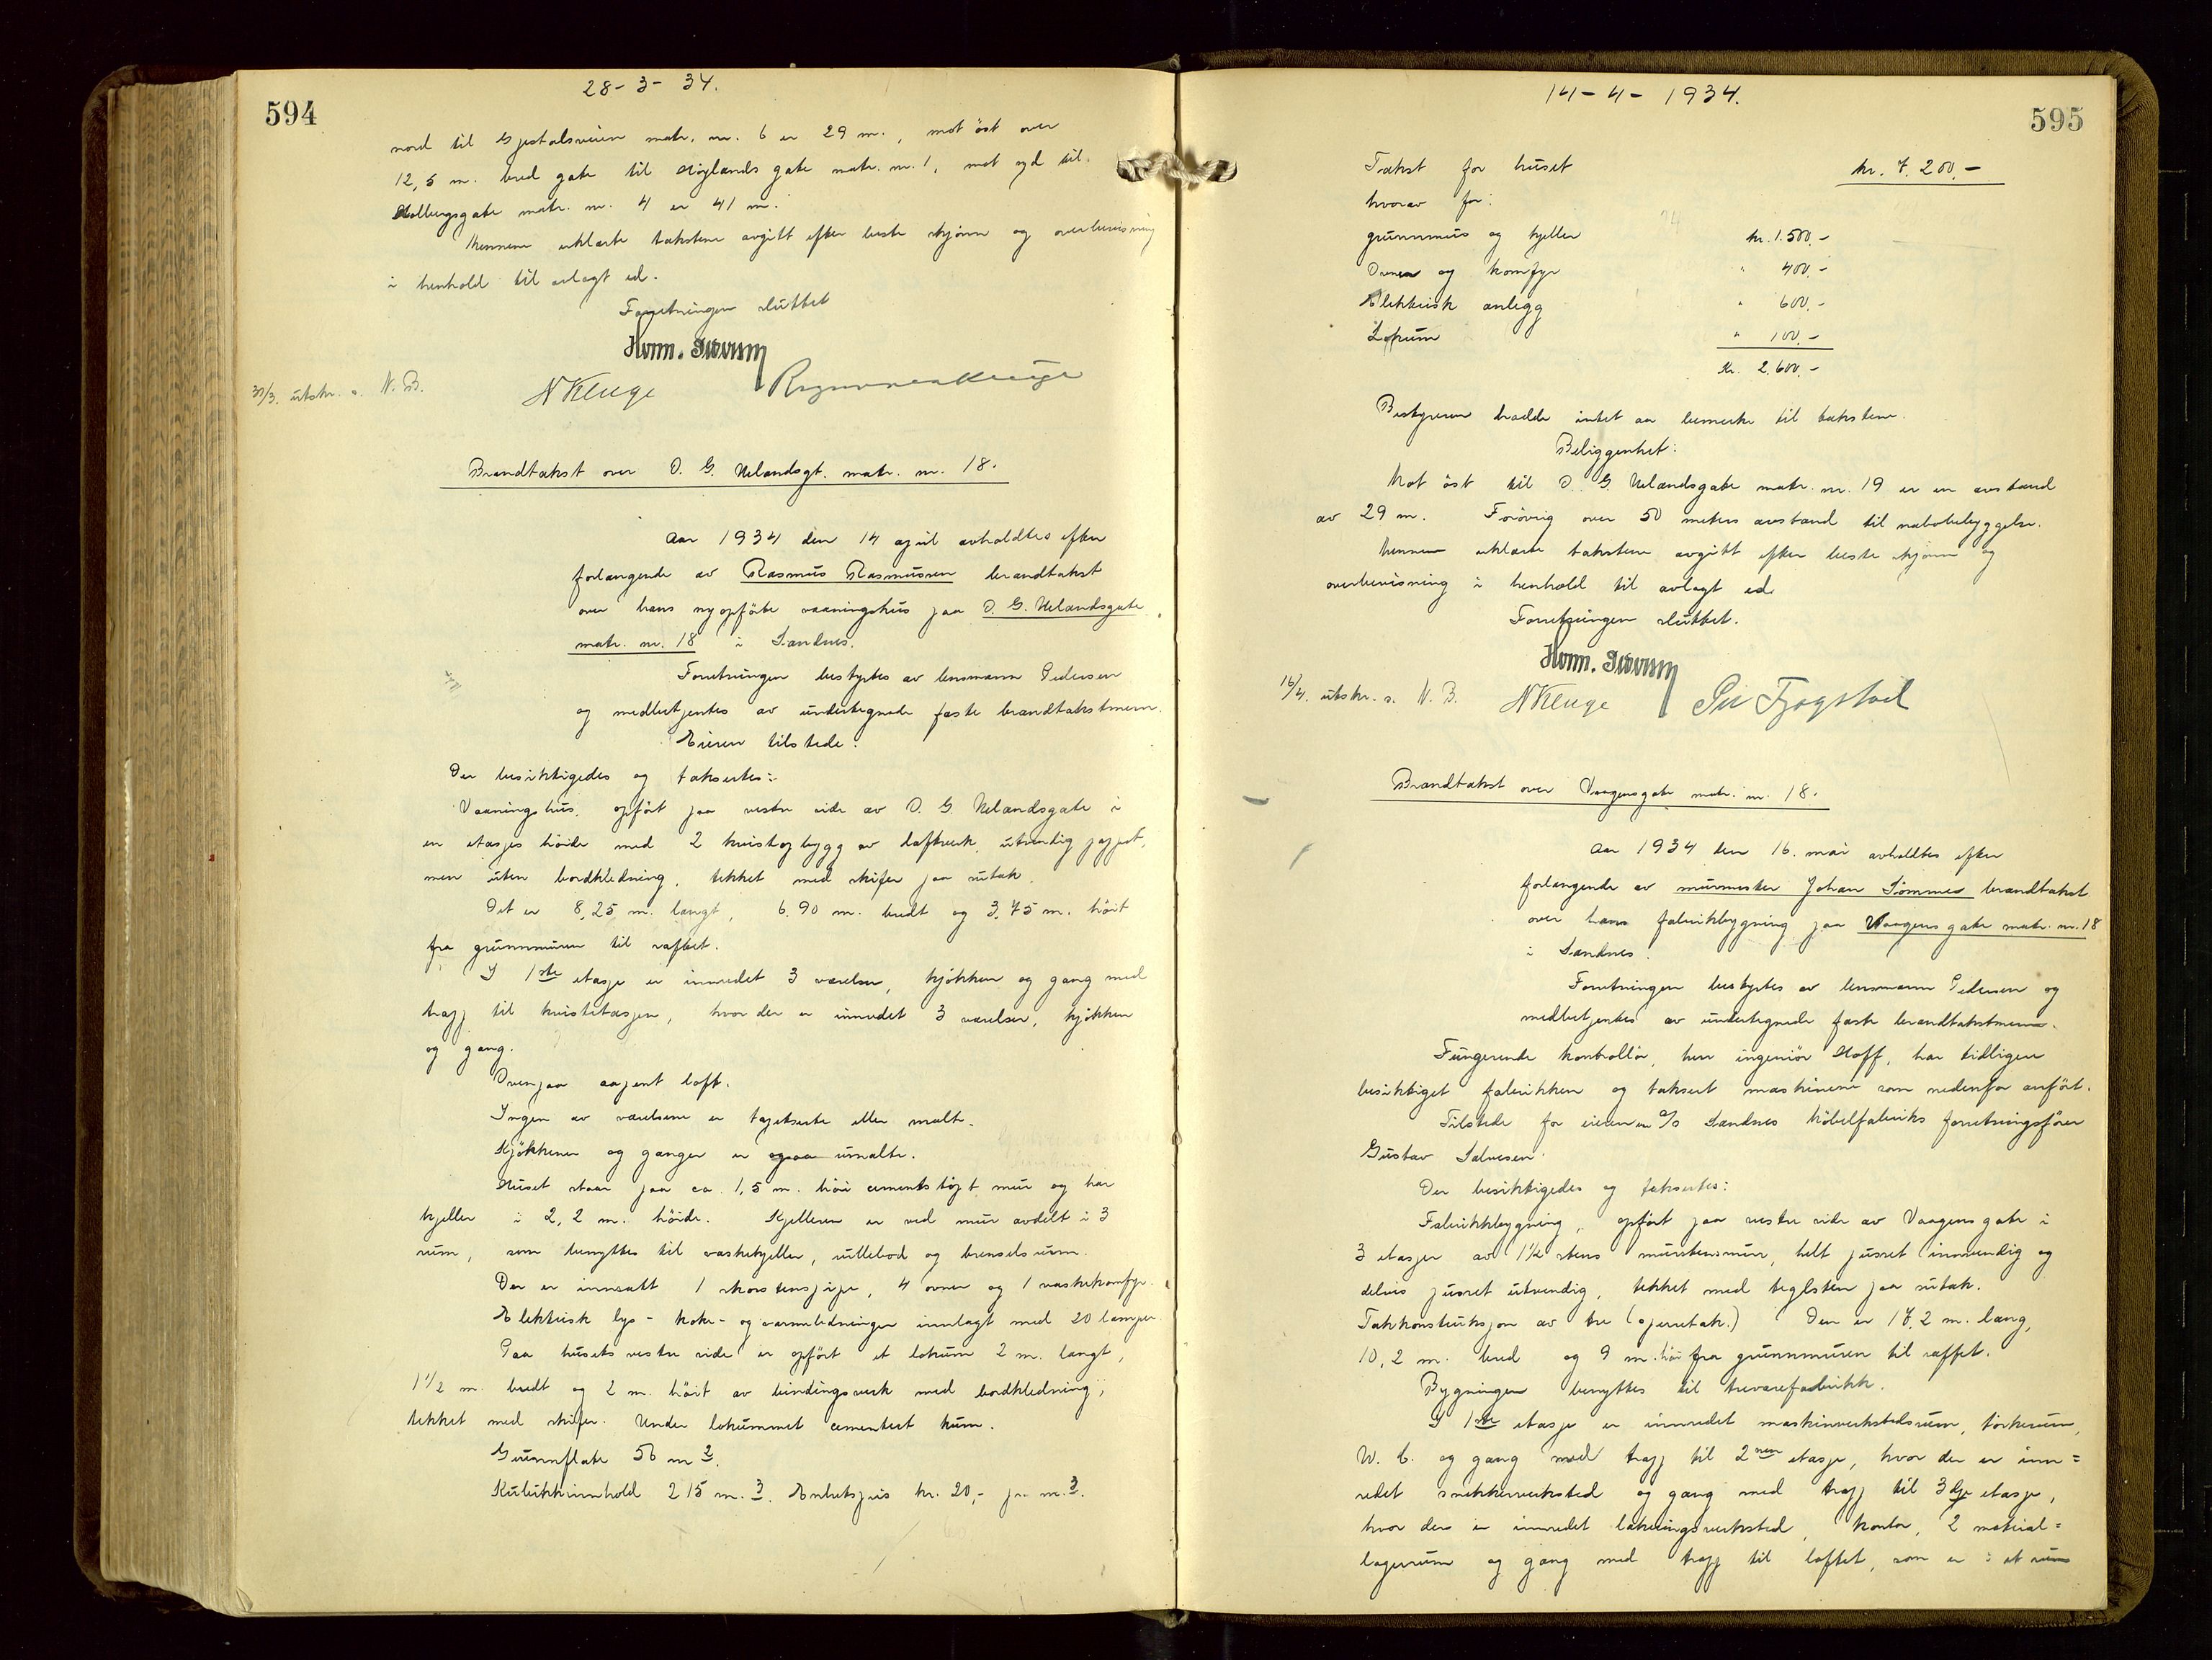 594
28-3-34.
nord til Gjestalsveien matr. nr. 6 er 29 m., mot öst over
12,5 m. bred gate til Höylands gate matr. nr. 1, mot syd til
Holbergsgate matr. nr. 4 er 41 m.
Mennene erklærte takstene avgitt efter beste skjönn og overbevisning
i henhold til avlagt ed.
Forretningen sluttet
N Kluge
31/3. utskr. s. N. B.
Brandtakst over O. G. Uelandsgt. matr. nr. 18.
Aar 1934 den 14 april avholdtes efter
forlangende av Rasmus Rasmussen brandtakst
over hans nyopförte vaaningshus paa O. G. Uelandsgate
matr. nr. 18 i Sandnes.
Forretningen bestyrtes av lensmann Pedersen
og medbetjentes av undertegnede faste brandtakstmenn.
Eieren tilstede.
Der besiktigedes og taksertes:
Vaaningshus, opfört paa vestre side av O. G. Uelandsgate i
en etasjes höide med 2 kvistopbygg av laftverk, utvendig pappet,
men uten bordkledning, tekket med skifer paa sutak.
Det er 8,25 m. langt, 6.90 m. bredt og 3,75 m. höit
fra grunnmuren til raftet.
I 1ste etasje er innredet 3 værelser, kjökken og gang med
trapp til kvistetasjen, hvor der er innredet 3 værelser, kjökken
og gang.
Ovenpaa aapent loft.
Ingen av værelsene er tapetserte eller malte.
Kjökkener og ganger er ogsaa umalte.
Huset staar paa ca. 1,5 m. höi cementstöpt mur og har
kjeller i 2,2 m. höide. Kjelleren er ved mur avdelt i 3
rum, som benyttes til vaskekjeller, rullebod og brenselsrum.
Der er innsatt 1 skorstenspipe, 4 ovner og 1 vaskekomfyr.
Elektrisk lys- koke- og varmeledninger innlagt med 20 lamper.
Paa husets vestre side er opfört et lokum 2 m. langt,
1 1/2 m. bredt og 2 m. höit av bindingsverk med bordkledning,
tekket med skifer. Under lokummet cementert kum.
Grunnflate 56 m2.
Kubikkinnhold 215 m.3. Enhetspris kr. 20,- pr. m.3.
595
14-4-1934.
Takst for huset kr. 7.200.-
hvorav for:
grunnmur og kjeller kr. 1.500.-
Ovner og komfyr " 400.-
Elektrisk anlegg " 600.-
Lokum " 100.-
Kr. 2.600.-
Bestyreren hadde intet aa bemerke til takstene.
Beliggenhet:
Mot öst til O. G Uelandsgate matr. nr. 19 er en avstand
av 29 m. Forövrig over 50 meters avstand til nabobebyggelse.
Mennene erklærte takstene avgitt efter beste skjönn og
overbevisning i henhold til avlagt ed.
Forretningen sluttet.
16/4. utskr. s. N. B. N Kluge Per Fjogstad
Brandtakst over Vaagensgate matr. nr. 18.
Aar 1934 den 16. mai avholdtes efter
forlangende av murmester Johan Sömme brandtakst
over hans fabrikkbygning paa Vaagens gate matr. nr. 18
i Sandnes.
Forretningen bestyrtes av lensmann Pedersen og
medbetjentes av undertegnede faste brandtakstmenn.
Fungerende kontrollör, herr ingeniör Hoff, har tidligere
besiktiget fabrikken og taksert maskinene som nedenfor anfört.
Tilstede for eieren A/S Sandnes Möbelfabriks forretningsförer
Gustav Salvesen.
Der besiktigedes og taksertes:
Fabrikkbygning, opfört paa vestre side av Vaagens gate i
3 etasjer av 1 1/2 stens murstensmur, helt pusset innvendig og
delvis pusset utvendig, tekket med teglsten paa sutak.
Takkonstruksjon av tre (sperretak.) Den er 17,2 m. lang,
10,2 m. bred og 9 m. höi fra grunnmuren til raftet.
Bygningen benyttes til trevarefabrikk.
I 1ste etasje er innredet maskinverkstedsrum, törkerum,
W. C. og gang med trapp til 2nen etasje, hvor der er inn=
redet snekkerverksted og gang med trapp til 3dje etasje,
hvor der er innredet lakeringsverksted, kontor, 2 material=
lagerrum og gang med trapp til loftet, som er i et rum